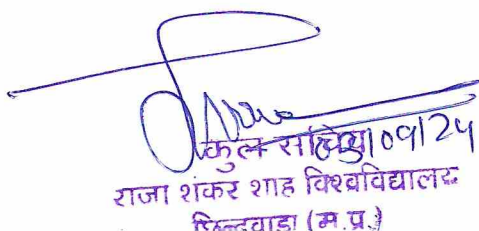 कुल सचिव 09/24
राजा शंकर शाह विश्वविद्यालय
छिन्दवाड़ा (म.प्र.)